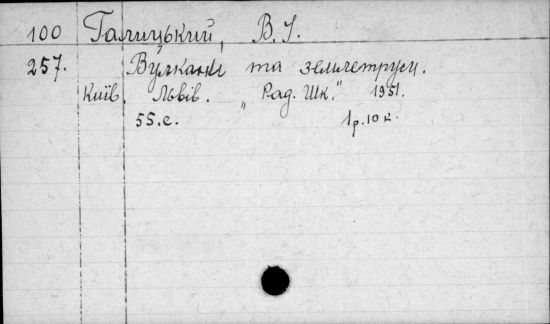 100 Галицький, В. І.
257. Вулкани та землетруси.
Київ. Львів. "Рад. Шк." 1951.
55.с. 1р.10к.